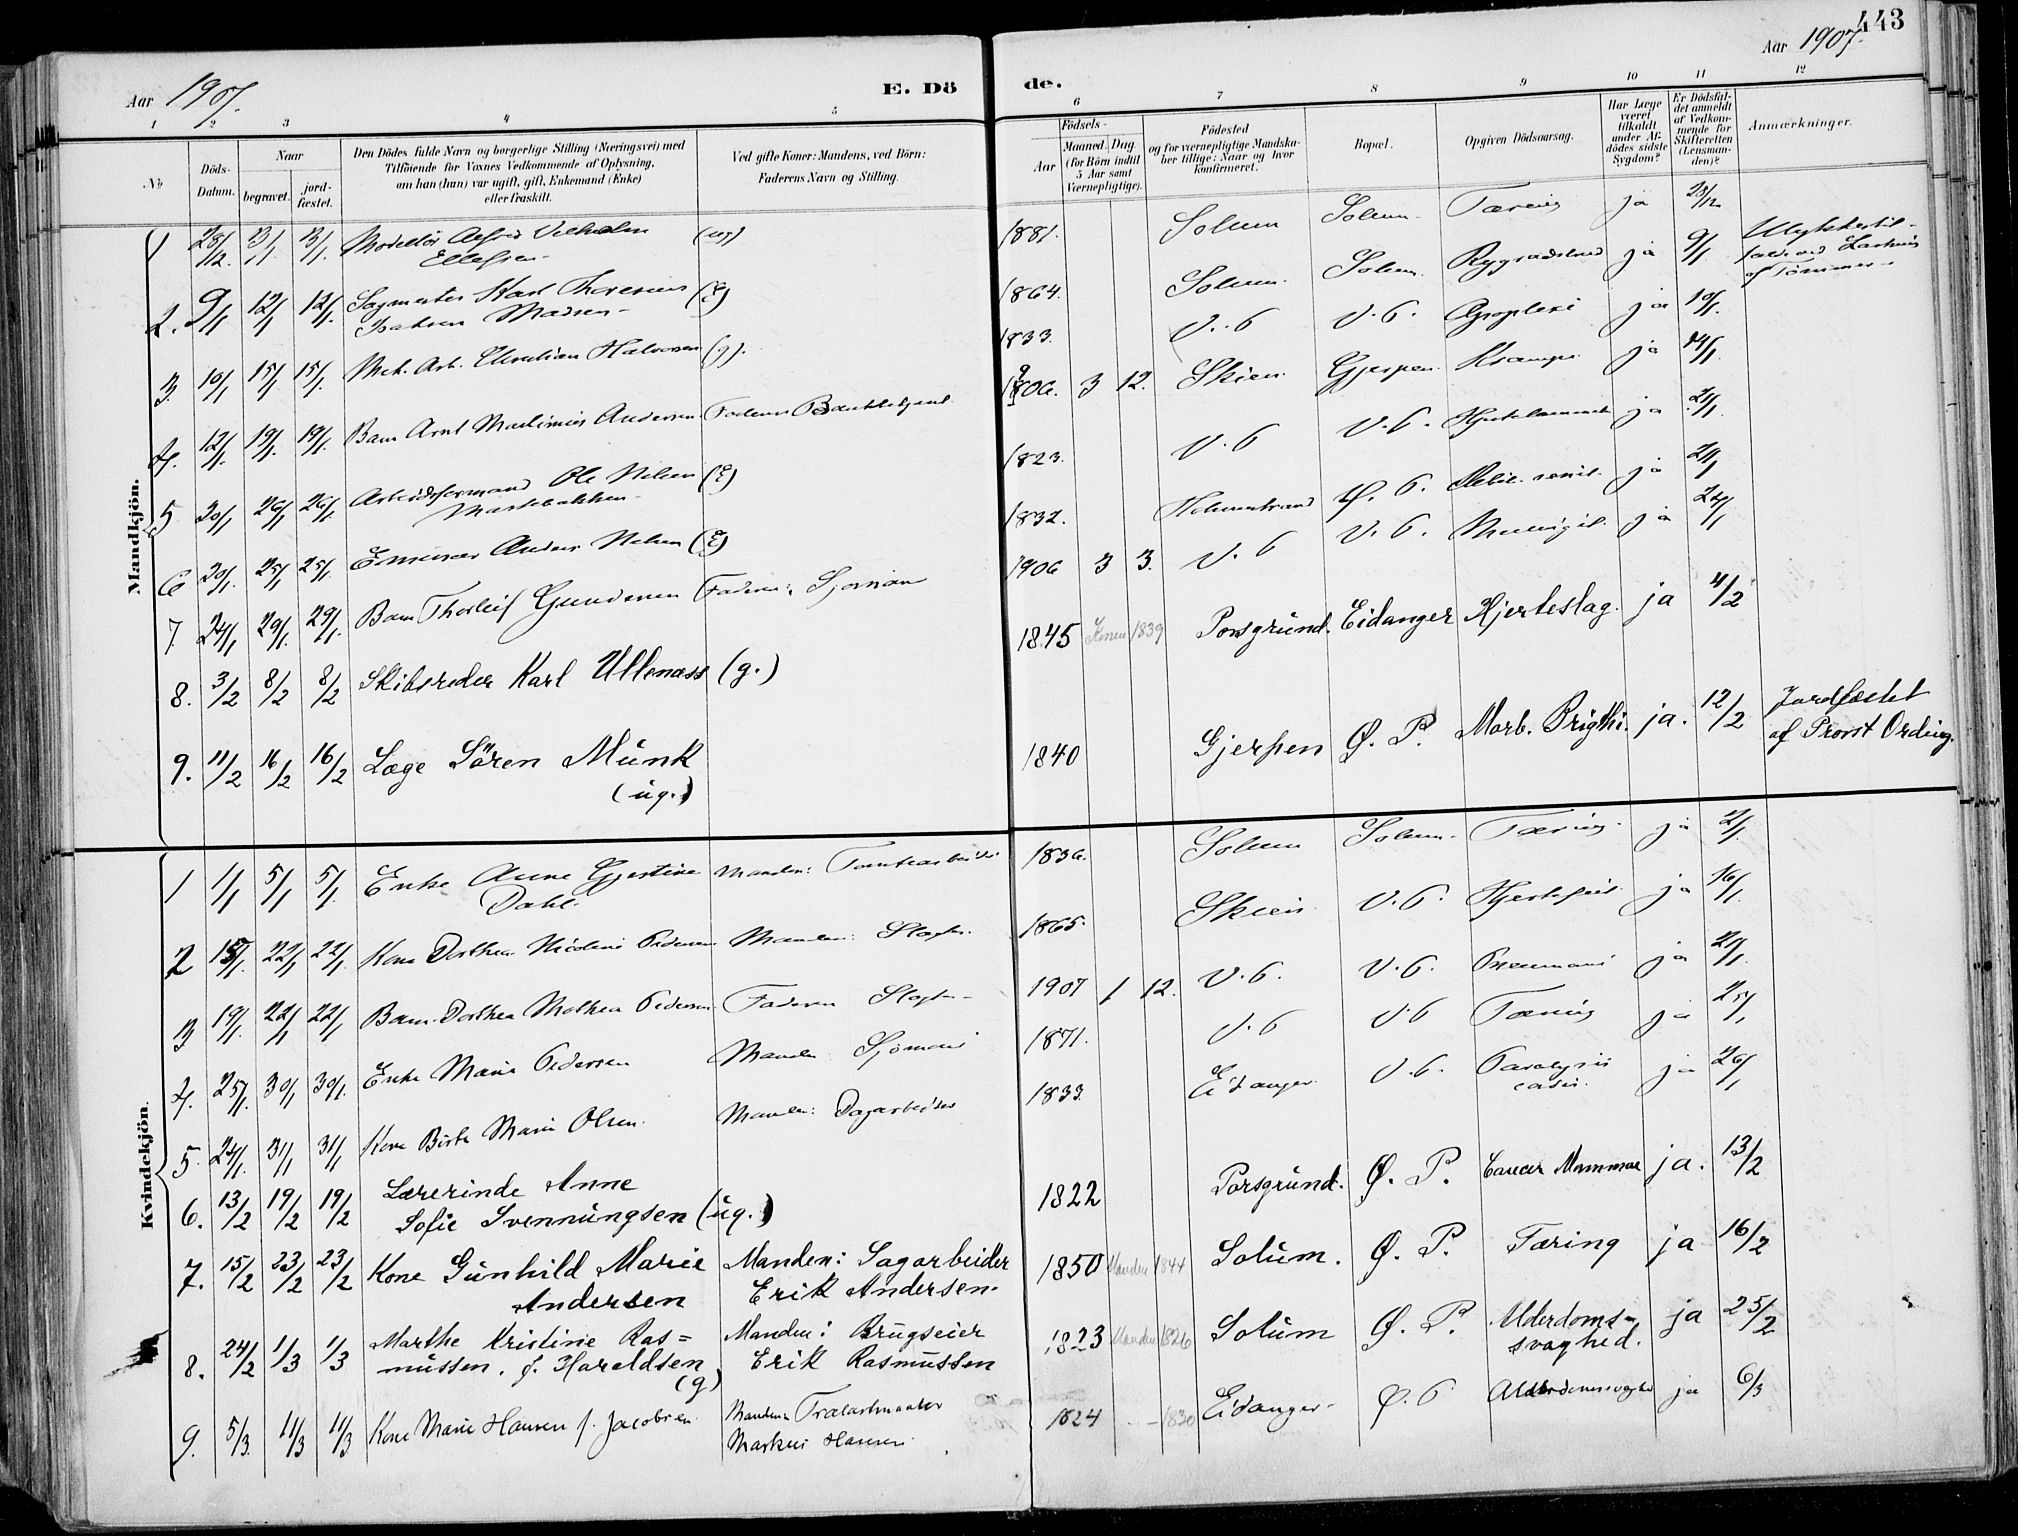 443
Aar 1907.
E. Dö
de.
Aar 1907.
1 2 3 4 5 6 7 8 9 10 11 12
№
Döds-
Datum.
Naar
begravet.
jord-
fæstet.
Den Dödes fulde Navn og borgerlige Stilling (Næringsvei) med
Tilföiende for Voxnes Vedkommende af Oplysning,
om han (hun) var ugift, gift, Enkemand (Enke)
eller fraskilt.
Ved gifte Koner: Mandens, ved Börn:
Faderens Navn og Stilling.
Födsels-
Aar
Maaned. Dag.
(for Börn indtil
5 Aar samt
Værnepligtige).
Födested
og for værnepligtige Mandsku-
ber tillige: Naar og hvor
konfirmeret.
Bopæl.
Opgiven Dödsaarsag.
Har Læge
været
tilkaldt
under Af-
dödes sidste
Sygdom?
Er Dödsfal-
det anmeldt
af Vedkom-
mende for
Skifteretten
(Lensman-
den)?
Anmærkninger.
Mandkjön.
1 28/12. 3/1. 3/1. Modellör Alfred Vilhelm (ug) 1881. Solum Solum Tæring ja 28/12
Ellefsen
2. 9/1 12/1 12/1. Sagmester Karl Thorenius (E) 1864. Solum. Solum. ja 9/1 Ulykkestil-
Isaksen Madsen
af Tømmer
3. 10/1 15/1 15/1. Mek. Arb. Christian Halvorsen (g). 1833. V. P. V. P. Apoplexi ja 10/1.
4. 12/1. 19/1. 19/1. Barn Arnt Martinius Andersen Faderen 1906. 3 12. Skien. Gjerpen. Krampe ja 14/1.
5 20/1 26/1 26/1. Arbeidsformand Ole Nilsen (E) 1823. V. P. V. P. ja 21/1.
6 20/1. 25/1 25/1. Anders Nilsen (E) 1832. Holmestrand Ø. P. ja 21/1
7. 24/1 29/1. 29/1. Barn Thorleif Gundersen Faderen: Sjømand 1906 3 3. V. P. V. P. ja 24/1
8. 3/2 8/2 8/2 Skibsreder Karl Ullenæss (g.) 1845 Konen 1839 Porsgrund. Eidanger Hjerteslag. ja 4/2
9. 11/2 16/2 16/2 Læge Sören Munk 1840 Gjerpen Ø. P. Morb. Brigthi. ja. 12/2 Jordfæstet
(ug.) af Provst Ording.
Kvindekjön.
1 1/1 5/1 5/1. Enke Anne Gjestine Manden: Tomtearbeider 1836. Solum Solum. Tæring. ja 2/1.
Dahl.
2 15/1. 22/1 22/1. Kone Dorthea Nicoline Pedersen Manden: Slagter. 1865. Skien V. P. Hjertefeil ja 16/1.
3 19/1. 22/1 22/1 Barn Dorthea Mathea Pedersen Faderen Slagter 1907 1 12. V. P. V. P. Pneumoni ja 21/1.
4. 25/1. 30/1 30/1. Enke Marie Pedersen Manden Sjømand 1871. V. P. V. P. Tæring ja 25/1
5. 24/1. 31/1 31/1 Kone Berte Marie Olsen. Manden: Dagarbeider 1833. Eidanger. V. P. Paralysis ja 26/1
6. 13/2 19/2 19/2 Lærerinde Anne 1822 Porsgrund. Ø. P. Cancer Mammae ja. 13/2
Sofie Svennungsen (ug.)
7. 15/2 23/2 23/2 Kone Gunhild Marie Manden: Sagarbeider 1850 Manden 1844 Solum. Ø. P. Tæring ja 16/2
Andersen Erik Andersen.
8. 24/2 1/3 1/3 Marthe Kristine Ras= Manden: Brugseier 1823 Manden 1826 Solum Ø. P. Alderdoms= ja 25/2
mussen, f. Haraldsen Erik Rasmussen svaghed.
(g)
9. 5/3. 11/3 11/3 Kone Marie Hansen f. Jacobsen Manden 1824 1830 Eidanger Ø. P. Alderdomssvaghed ja 6/3
Markus Hansen